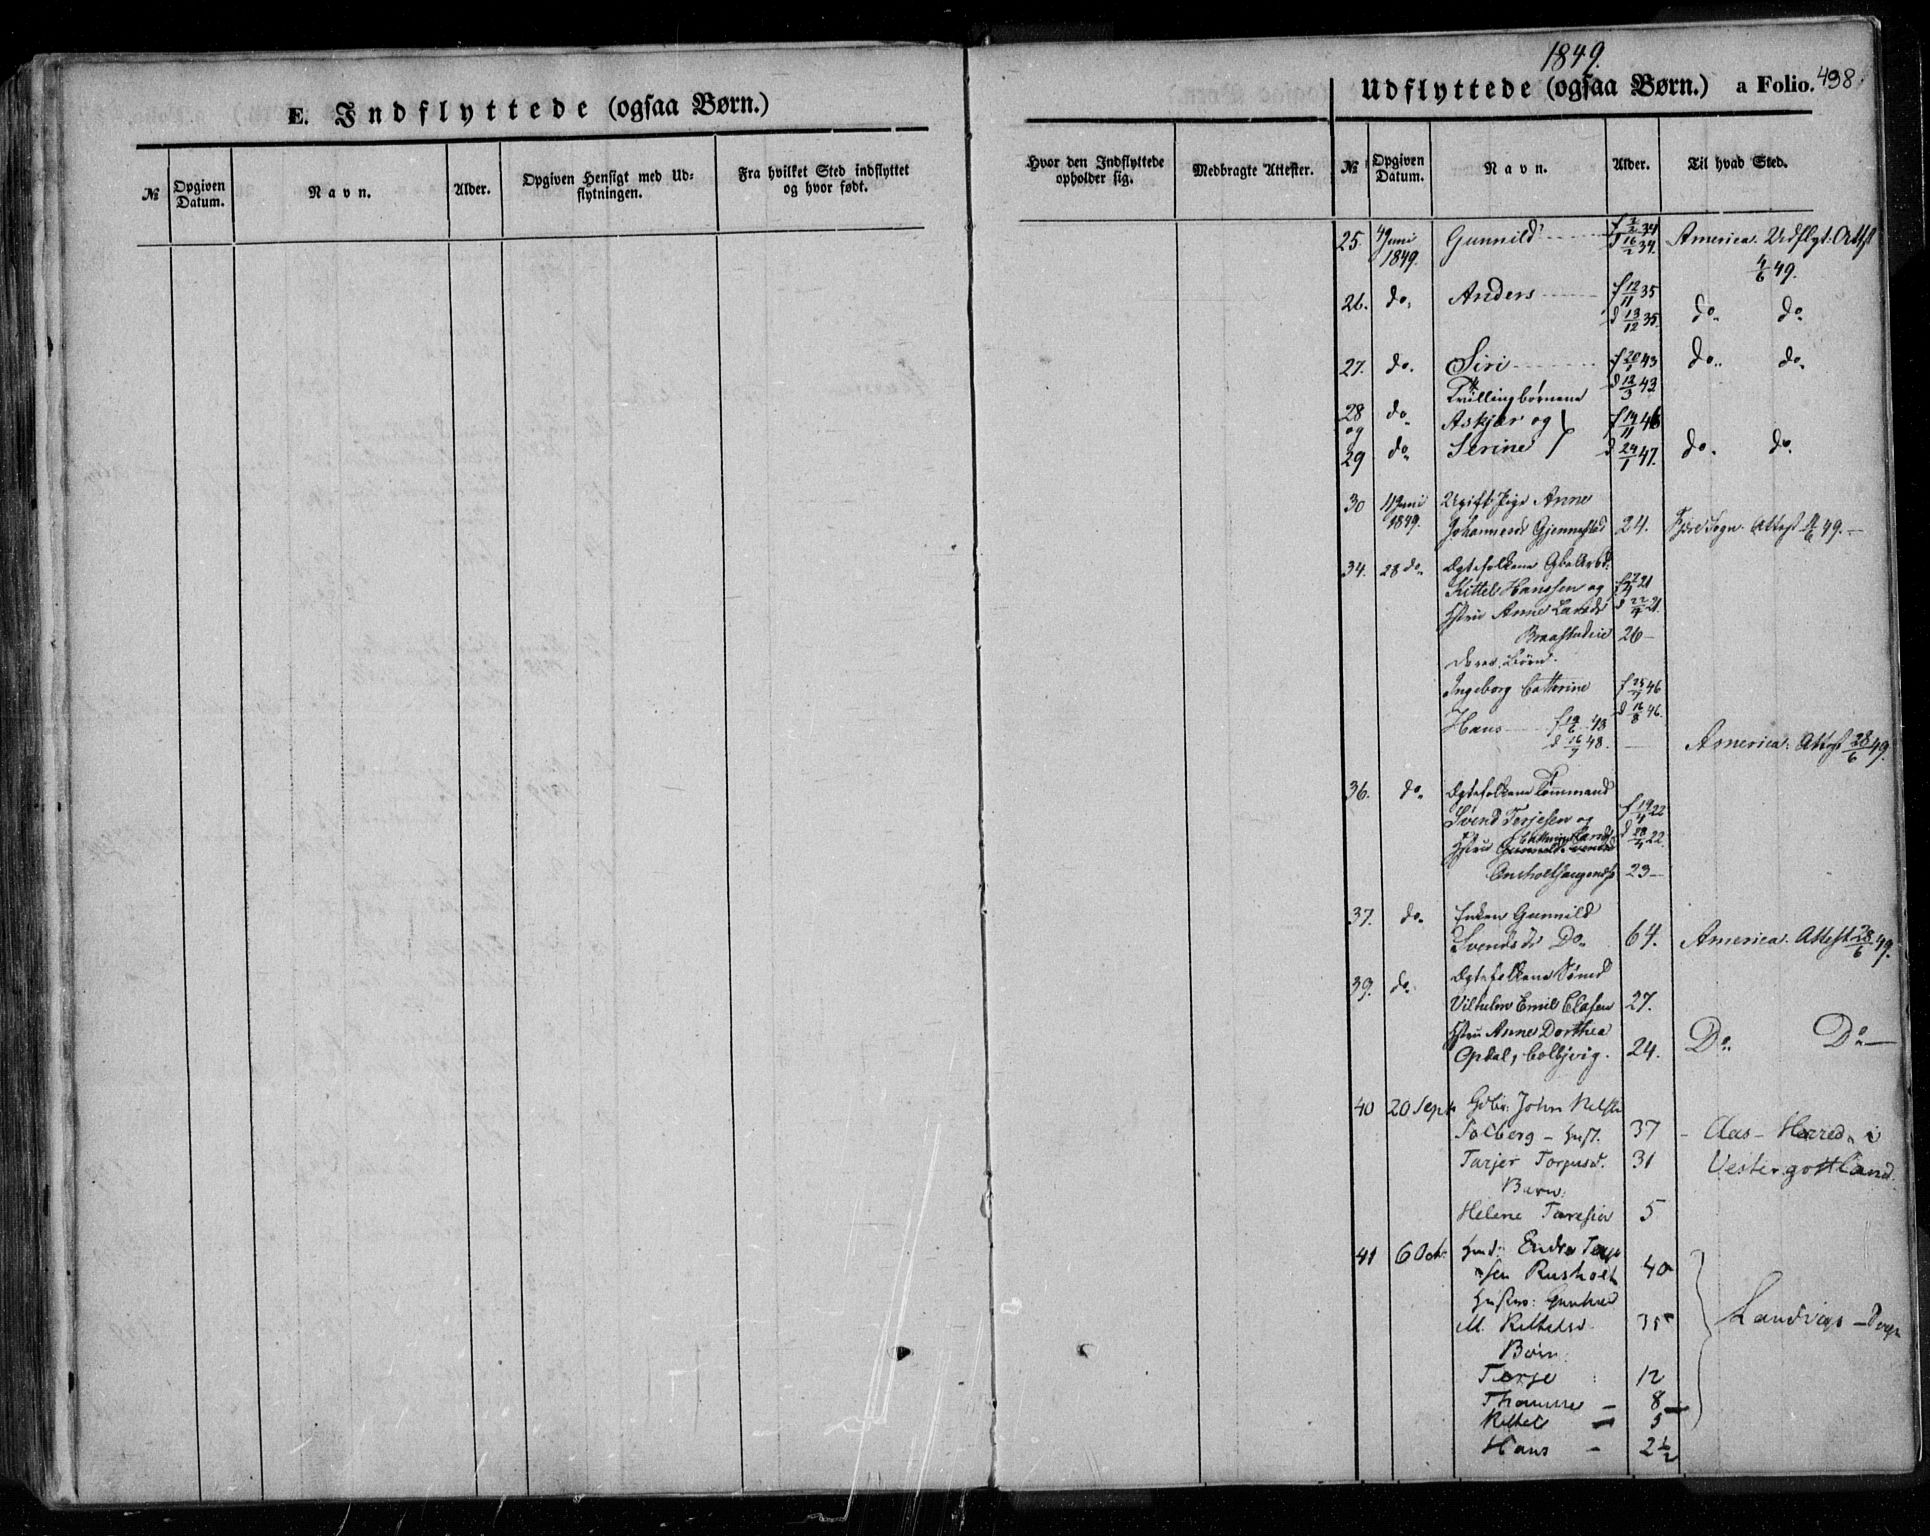 E. Indflyttede (ogsaa Børn.)
№
Opgiven Datum.
Navn.
Alder.
Opgiven Hensigt med Ud-
flytningen.
Fra hvilket Sted indflyttet
og hvor født.
1849.
Udflyttede (ogsaa Børn.) a Folio. 438
Hvor den Indflyttede
opholder sig.
Medbragte Attester.
№
Opgiven Datum.
Navn.
Alder.
Til hvad Sted.
25. 4 Juni Gunnild f 2/2 34 America. Udflgt. Attest
1849. d 16/2 34.
4/6 49.
26. do. Anders f 12/11 35
d 13/12 35. do. do.
27. do. Siri f 20/1 43 do. do.
Tvillingbørnene d 12/3 43
28 do Askjær og f 14/11 46
og
29 do. Serine d 24/1 47. do. do.
30 11 Juni Ugift Pige Anne
1849. Johannesd. 24. Sogn. Attest 11/6 49.
34. 28 do. Ægtefolkene
Kittel Hanssen og f 21
Hstru Anne Larsd. d 22 21.
26
deres Børn.
Ingeborg Cathrine f 25/7 46
d 16/8 46.
Hans f 19/6 48
d 16/7 48.
America. Attest 28/6 49.
36. do. Ægtefolkene Tømmermand
Svend Terjesen og f 19/4 22
Cathrine
Hstru d 28/4 22
23
37. do. Enken Gunnild
Svendsdr. Do. 64. America. Attest 28/6 49.
39. do. Ægtefolkene Sømd.
Vilhelm Emil Clasen 27.
Hstru Anne Dorthea
Opdal, Colbjvig. 24. Do. Do.
40 20 Sept. John Nels
Solberg - Hust. 37 - Aas - Herred i
Tarjer Torjusd. 31 Vestergottland.
Barn:
Helene Taresia 5
41 6 Oct. Endre Terje
sen Rusholt 40
Hustru: Gunhild
M. Kittelsd. 35 Landvigs - Sogn
Børn:
Terje 12
Thomine - 8
Kittel - 5
Hans - 2 1/2